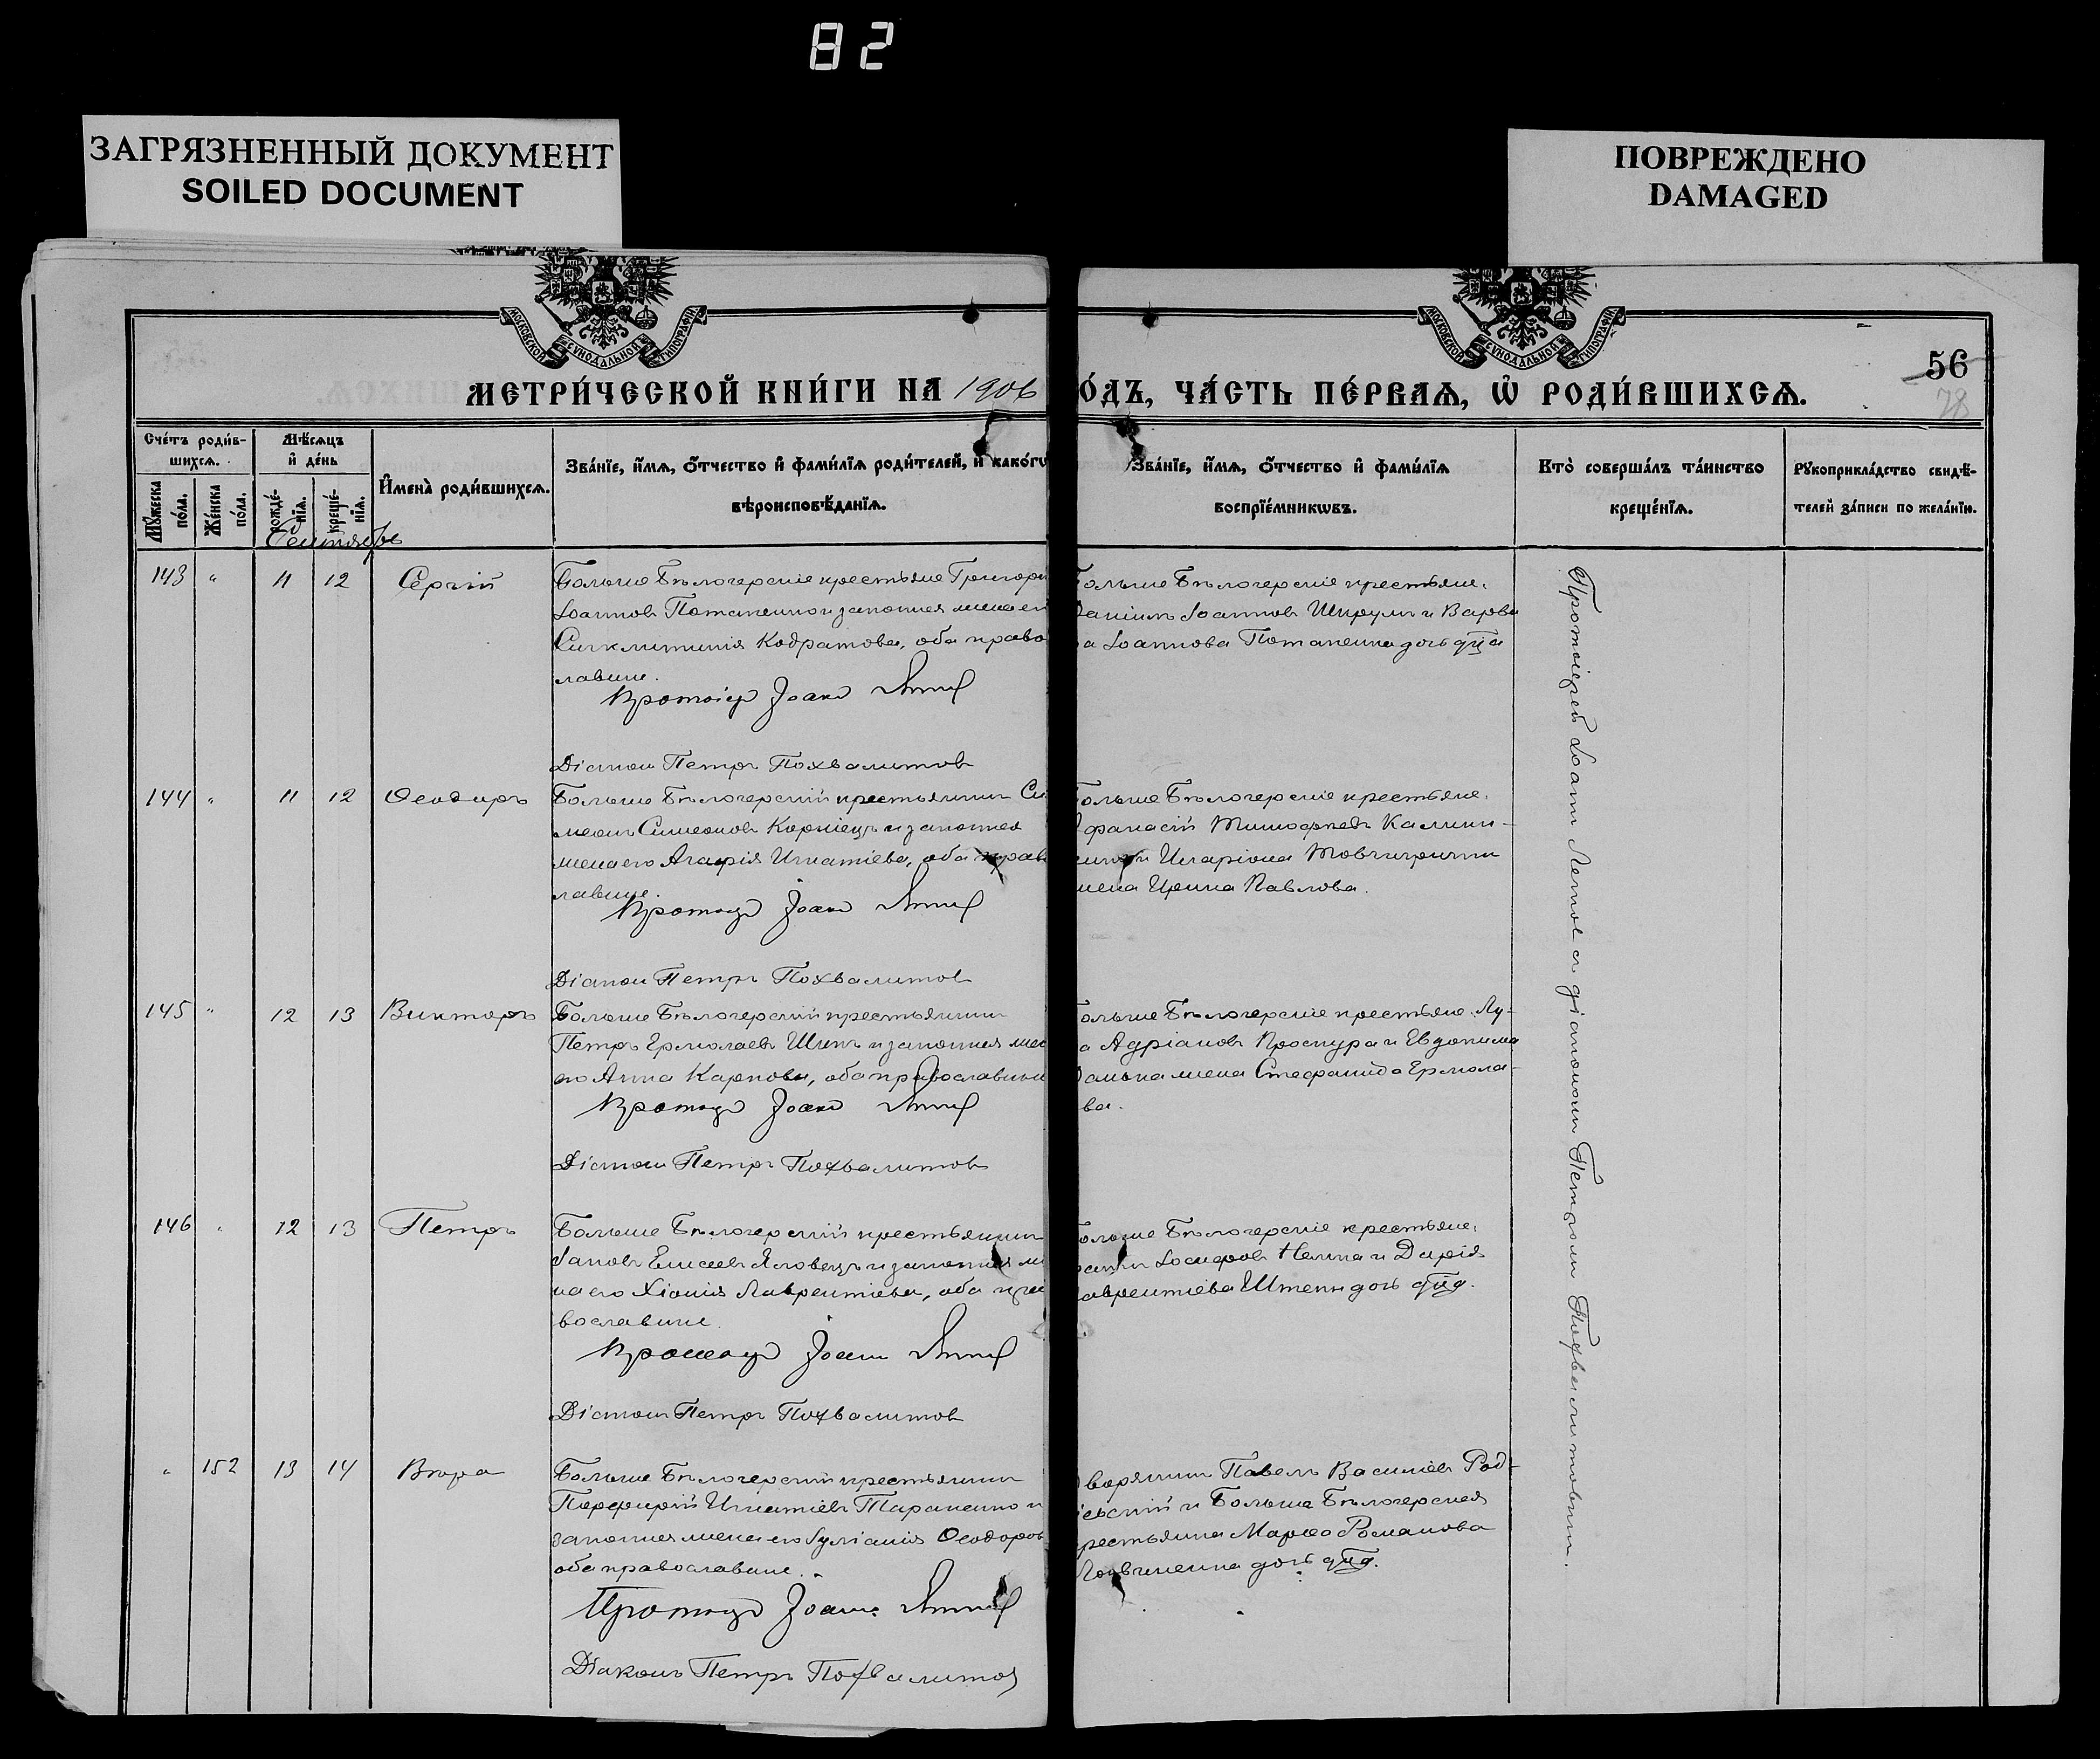 82
ЗАГРЯЗНЕННЫЙ ДОКУМЕНТ
SOILED DOCUMENT
ПОВРЕЖДЕНО
DAMAGED
МОСКОВСКОЙ СѴНОДАЛЬНОЙ ТИПОГРАФІИ
МОСКОВСКОЙ СѴНОДАЛЬНОЙ ТИПОГРАФІИ
56
78
МЕТРИ́ЧЕСКОЙ КНИ́ГИ НА 1906
О́ДЪ, ЧА́СТЬ ПЕ́РВАѦ, Ѡ҆ РОДИ́ВШИХСѦ.
Сче́тъ роди́в-
шихсѧ.
Мѣ́сѧцъ
и҆ де́нь
Мꙋ́жеска по́ла.
Же́нска по́ла.
рожде́-
нїѧ.
креще́-
нїѧ.
И҆мена̀ роди́вшихсѧ.
Зва́нїе, и҆́мѧ, ѻ҆́тчество и҆ фами́лїѧ роди́телей, и҆ како́гѡ
вѣроисповѣ́данїѧ.
Зва́нїе, и҆́мѧ, ѻ҆́тчество и҆ фами́лїѧ
воспрїе́мникѡвъ.
Кто̀ соверша́лъ та́инство
креще́нїѧ.
Рꙋкоприкла́дство свидѣ́-
телей за́писи по жела́нїю.
Сентябрь
143 " 11 12 Сергій
Больше Бѣлозерскіе крестьяне Григорі
Іоаннов Потапенко и законная жена ег
Синклитикія Кодратова, оба право
славные.
Протоіер Іоанн
Діакон Петръ Похвалитов
Больше Бѣлозерскіе крестьяне.
Даніилъ Іоаннов Шкрумъ и Варва
ра Іоаннова Потапенка дочь дца
144 " 11 12 Ѳеодоръ
Больше Бѣлозерскій крестьянинъ Си
меонъ Симеонов Корніецъ и законная
жена его Агафія Игнатіева, оба прав
лавные.
Протоіер Іоанн
Діакон Петръ Похвалитов
Больше Бѣлозерскіе крестьяне.
Афанасій Тимофеев Калини-
и Иларіона
жена Ирина Павлова.
145 " 12 13 Викторъ
Больше Бѣлозерскій крестьянинъ
Петръ Ермолаев и законная жен
его Анна Карпова, оба православные
Протоіер Іоанн
Діакон Петръ Похвалитов
Больше Бѣлозерскіе крестьяне. Лу-
а Адріанов Проскура и Евдокима
жена Стефанида Ермола-
ва.
146 " 12 13 Петръ
Больше Бѣлозерскій крестьянинъ
Іаков Елисеев Яловецъ и законная же
на его Хіонія Лаврентіева, оба пра
вославные.
Протоіер Іоанн
Діакон Петръ Похвалитов
Больше Бѣлозерскіе крестьяне.
Іосифов и Дарія
Лаврентіева Штепы дочь дца.
" 152 13 14 Вѣра
Больше Бѣлозерскій крестьянинъ
Порфирій Игнатіев Тараненко и
законная жена его Іуліанія Ѳеодоров
оба православные.
Протоіер Іоанн
Діаконъ Петръ Похвалитов
Дворянинъ Павелъ Василіев Род-
и Больше Бѣлозерская
крестьянка Марѳа Романова
дочь дца.
Протоіерей Іоанн с діаконом Петром Похвалитовым.